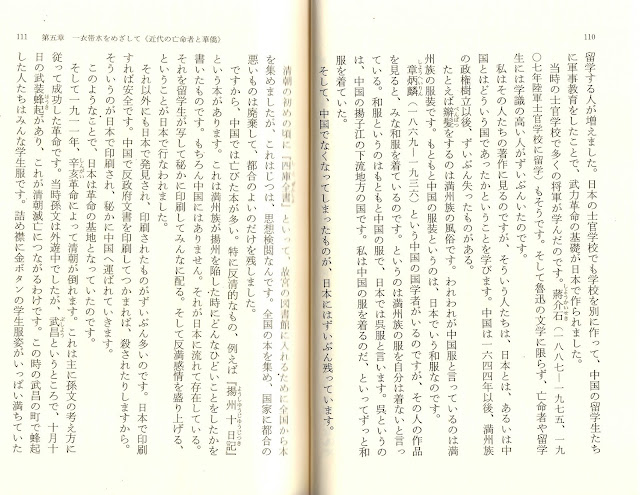 110
留学する人が増えました。日本の士官学校でも学校を別に作って、中国の留学生たち
に軍事教育をしたことで、武力革命の基礎が日本で作られました。
当時の士官学校で多くの将軍が学んだのです。蔣介石(一八八七―一九七五、一九
〇七年陸軍士官学校に留学)もそうです。そして魯迅の文学に限らず、亡命者や留学
生には学識の高い人がずいぶんいたのです。
私はその人たちの著作に見るのですが、そういう人たちは、日本とは、あるいは中
国とはどういう国であったかということを学びます。中国は一六四四年以後、満州族
の政権樹立以後、ずいぶん失ったものがある。
たとえば辮髪をするのは満州族の風俗です。われわれが中国服と言っているのは満
州族の服装です。もともと中国の服装というのは、日本でいう和服なのです。
章炳麟(一八六九―一九三六)という中国の国学者がいるのですが、その人の作品
を見ると、みな和服を着ているのです。というのは満州族の服を自分は着ないと言っ
ている。和服というのはもともと中国の服で、日本では呉服と言います。呉というの
は、中国の揚子江の下流地方の国です。私は中国の服を着るのだ、といってずっと和
服を着ていた。
そして、中国でなくなってしまったものが、日本にはずいぶん残っています。
111 第五章 一衣帯水をめざして〈近代の亡命者と華僑〉
清朝の初めの頃に『四庫全書』といって、故宮の図書館に入れるために全国から本
を集めましたが、これはじつは、思想検閲なんです。全国の本を集め、国家に都合の
悪いものは廃棄して、都合のよいのだけを残しました。
ですから、中国ではこびた本が多い。特に反清的なもの、例えば『揚州十日記』
という本があります。これは満州族が揚州を陥した時にどんなひどいことをしたかを
書いたものです。もちろん中国にはありません。それが日本に流れて存在している。
それを留学生が写して秘かに印刷してみんなに配る、そして反満感情を盛り上げる、
ということが日本で行なわれました。
それ以外にも日本で発見され、印刷されたものがずいぶん多いのです。日本で印刷
すれば安全です。中国で反政府文書を印刷してつかまれば、殺されたりしますから。
そういうのが日本で印刷され、秘かに中国へ運ばれていきます。
このようなことで、日本は革命の基地となっていたのです。
そして一九一一年、辛亥革命によって清朝が倒れます。これは主に孫文の考え方に
従って成功した革命です。当時孫文は外遊中でしたが、武昌というところで、十月十
日の武装蜂起があり、これが清朝滅亡につながるわけです。この時の武昌の町で蜂起
した人たちはみんな学生服です。詰め襟に金ボタンの学生服姿がいっぱい満ちていた